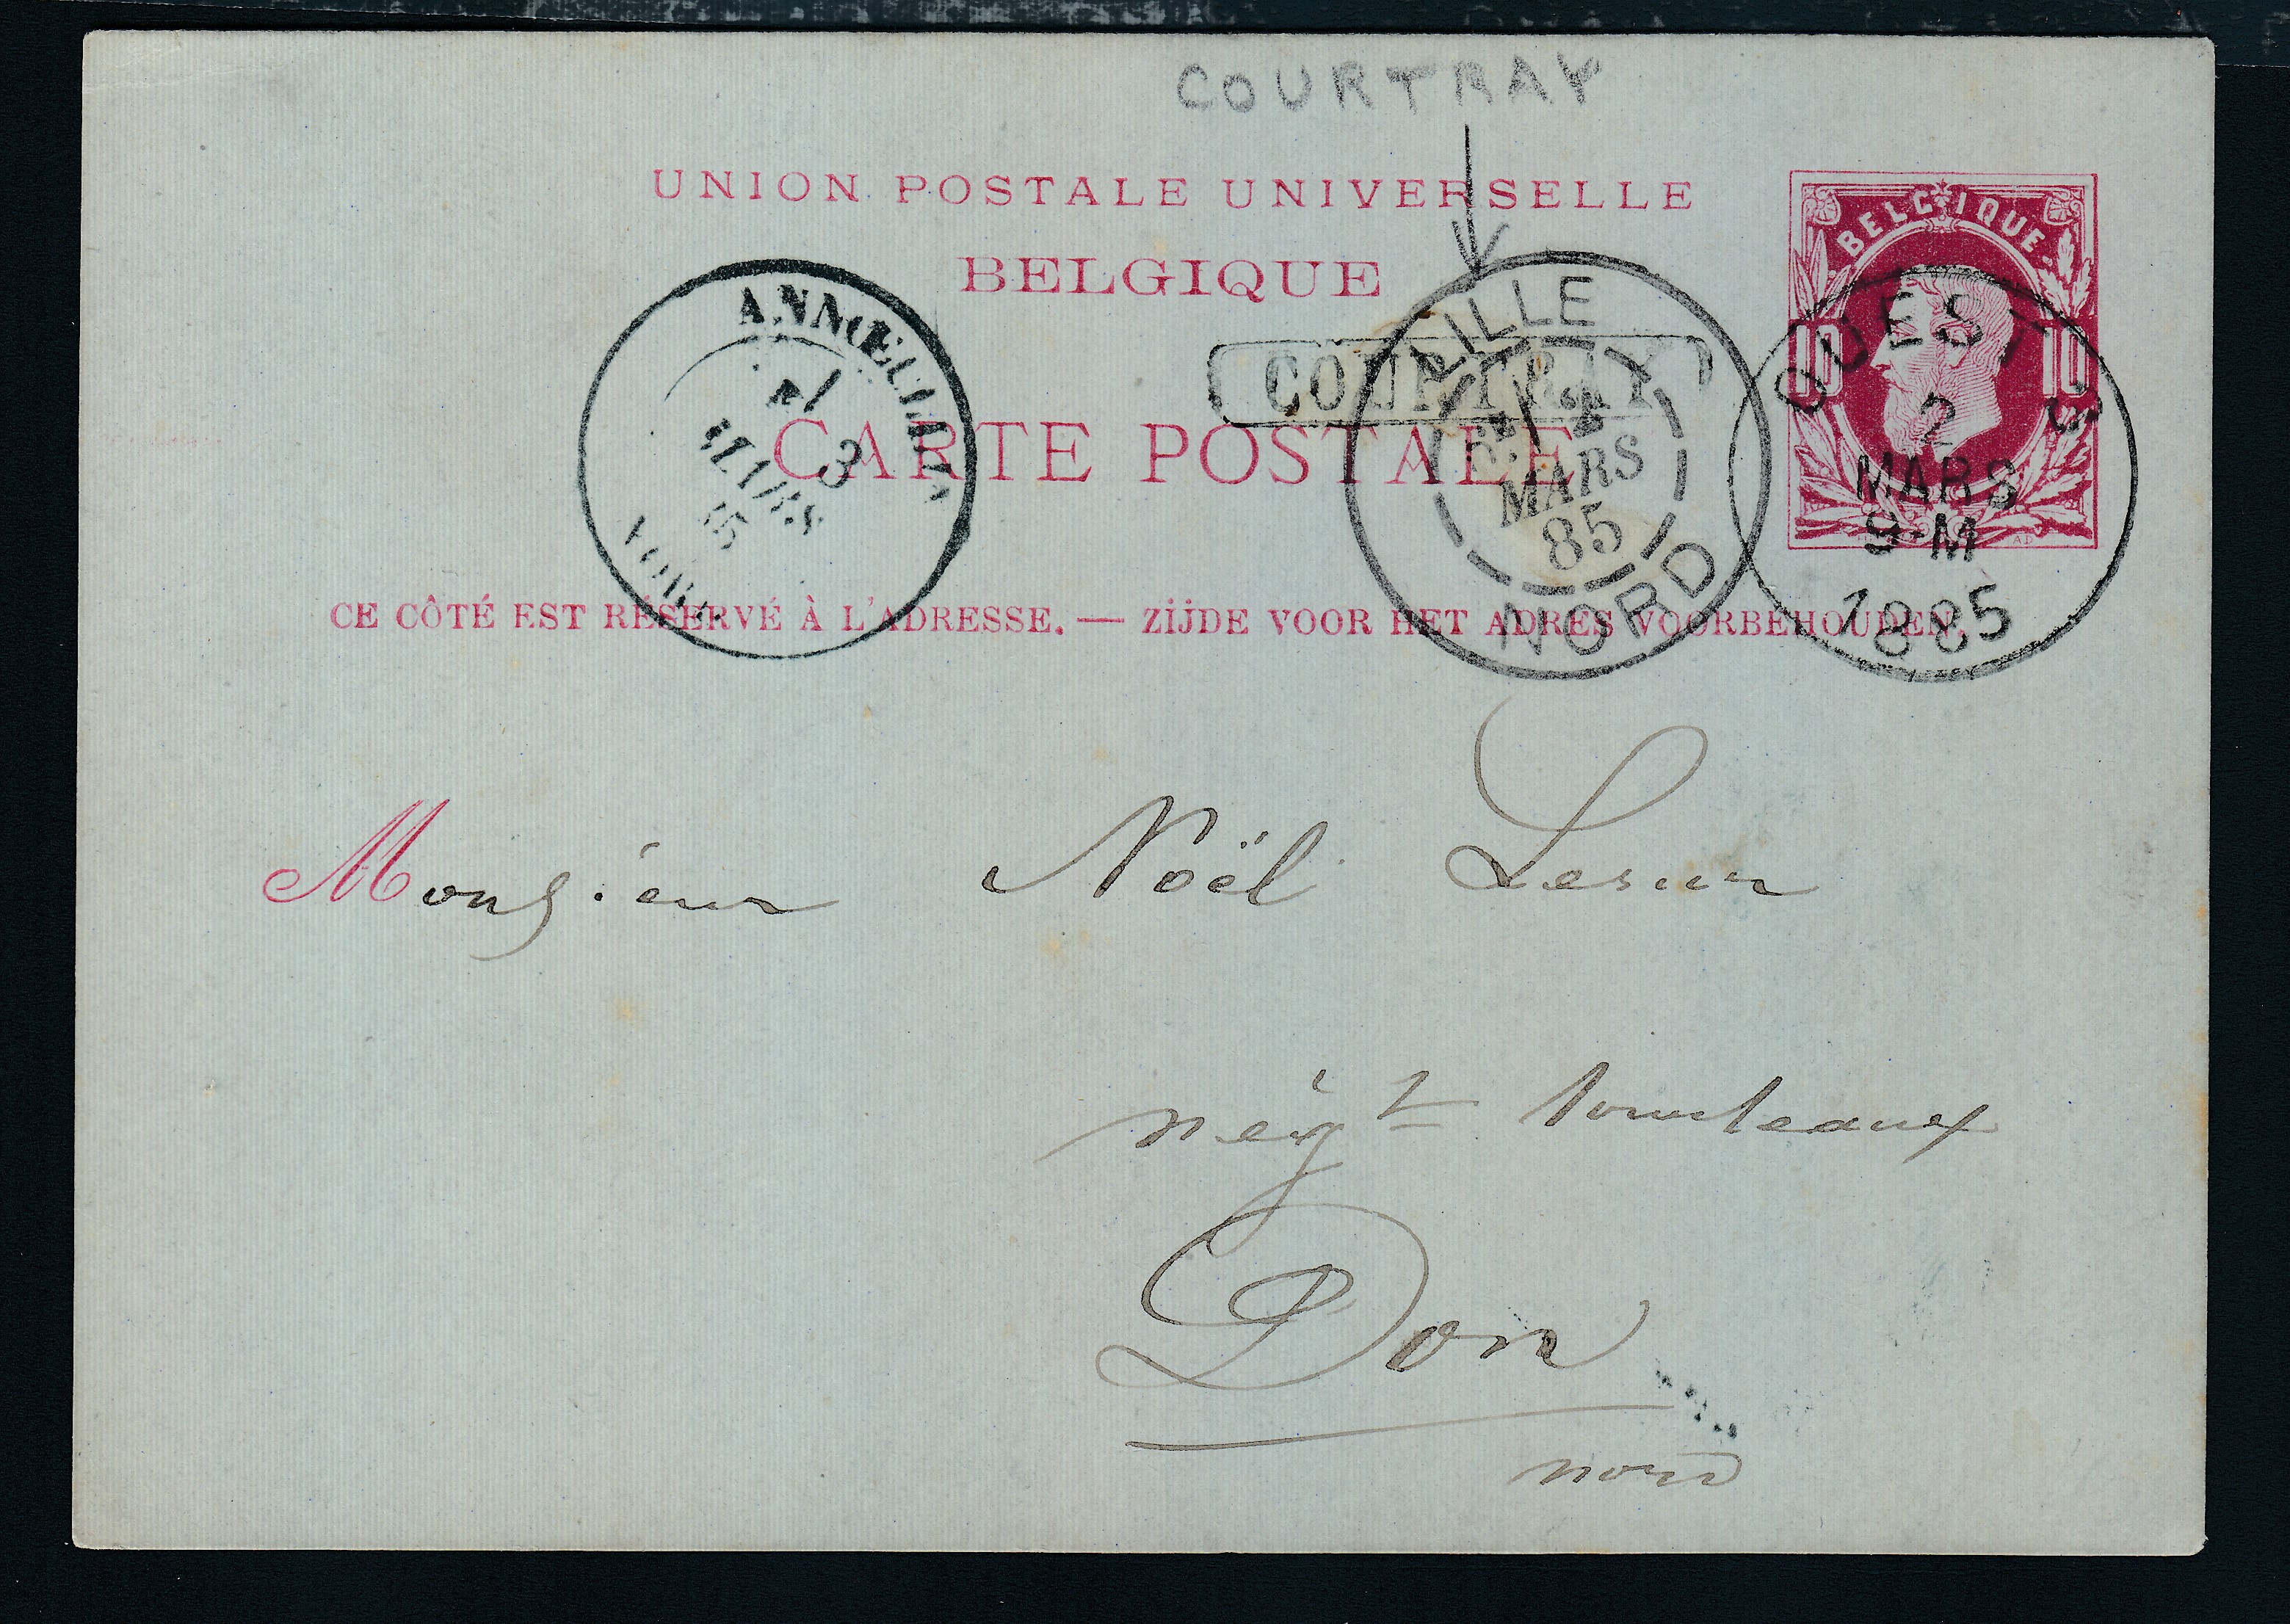 COURTRAY
UNION POSTALE UNIVERSELLE
BELGIQUE
BELGIQUE
10 10
ANNŒULLIN
1
3
MARS
NORD
COURTRAY
LILLE
2
MARS
85
NORD
OUEST 3
2
MARS
9-M
1885
CARTE POSTALE
CE CÔTÉ EST RÉSERVÉ À L'ADRESSE. — ZIJDE VOOR HET ADRES VOORBEHOUDEN.
Monsieur Noël Lesur
négt tourteaux
Don
nord